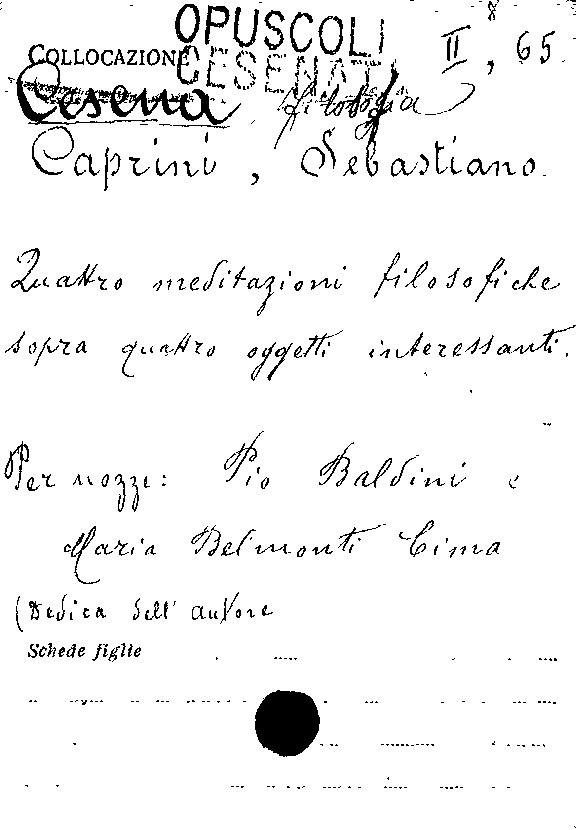 OPUSCOLI
CESENATI
COLLOCAZIONE
II, 65.
Cesena filologia
Caprini, Sebastiano.
Quattro meditazioni filosofiche
sopra quattro oggetti interessanti.
Per nozze: Pio Baldini e
Maria Belmonti Cima
(Dedica dell' autore
Schede figlie